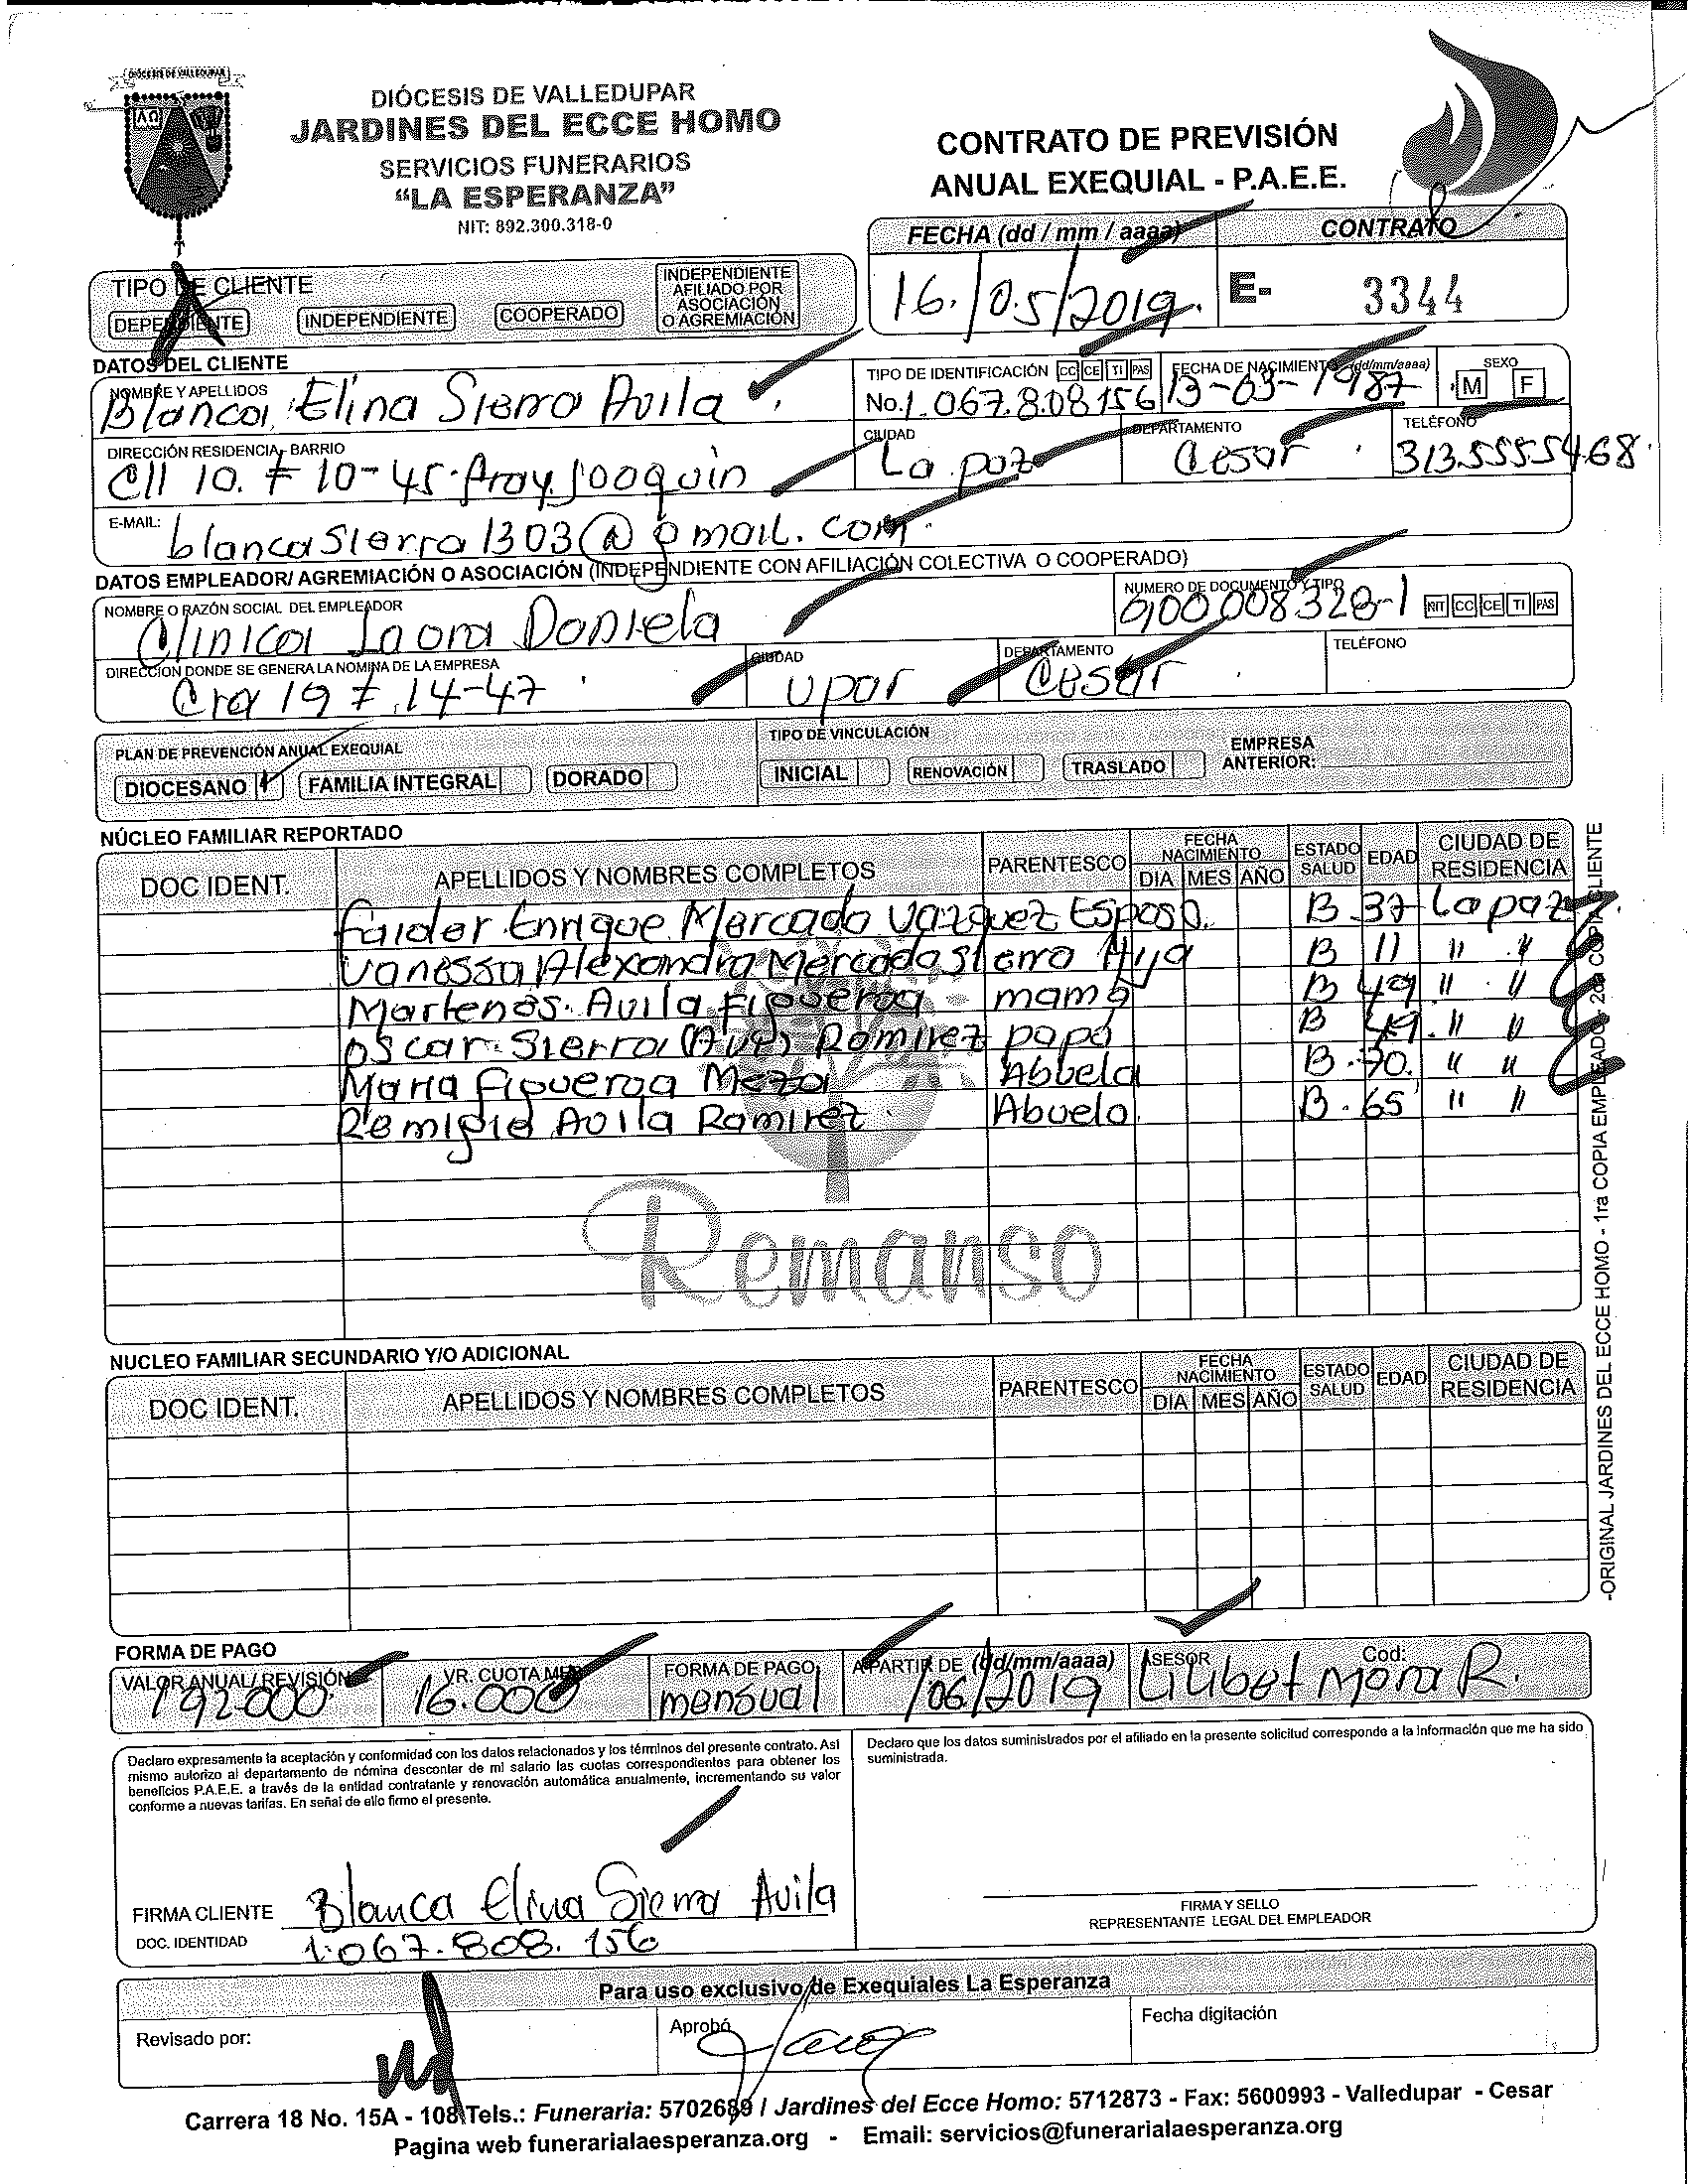 DIÓCESIS DE VALLEDUPAR
DIÓCESIS DE VALLEDUPAR
JARDINES DEL ECCE HOMO
SERVICIOS FUNERARIOS
“LA ESPERANZA”
NIT: 892.300.318-0
CONTRATO DE PREVISIÓN
ANUAL EXEQUIAL - P.A.E.E.
FECHA (dd / mm / aaaa) CONTRATO
16/05/2019. E- 3344
TIPO DE CLIENTE
DEPENDIENTE INDEPENDIENTE COOPERADO INDEPENDIENTE AFILIADO POR ASOCIACIÓN O AGREMIACIÓN
DATOS DEL CLIENTE
NOMBRE Y APELLIDOS TIPO DE IDENTIFICACIÓN CC CE TI PAS FECHA DE NACIMIENTO (dd/mm/aaaa) SEXO
Blanca Elina Sierra Avila No. 1.067.808156 13-03-1987 M F
DIRECCIÓN RESIDENCIA, BARRIO CIUDAD DEPARTAMENTO TELÉFONO
Cll 10. # 10-45. Fray Joaquin La paz Cesar 3135555468.
E-MAIL: blancasierra1303@gmail.com
DATOS EMPLEADOR/ AGREMIACIÓN O ASOCIACIÓN (INDEPENDIENTE CON AFILIACIÓN COLECTIVA O COOPERADO)
NOMBRE O RAZÓN SOCIAL DEL EMPLEADOR NUMERO DE DOCUMENTO Y TIPO
Clinica Laura Daniela 900008328-1 NIT CC CE TI PAS
DIRECCIÓN DONDE SE GENERA LA NOMINA DE LA EMPRESA CIUDAD DEPARTAMENTO TELÉFONO
Cra 19 # 14-47 Upar Cesar
PLAN DE PREVENCIÓN ANUAL EXEQUIAL TIPO DE VINCULACIÓN
DIOCESANO FAMILIA INTEGRAL DORADO INICIAL RENOVACIÓN TRASLADO EMPRESA ANTERIOR:
NÚCLEO FAMILIAR REPORTADO
DOC IDENT. APELLIDOS Y NOMBRES COMPLETOS PARENTESCO FECHA NACIMIENTO DIA MES AÑO ESTADO SALUD EDAD CIUDAD DE RESIDENCIA
Faider Enrique Mercado Vazquez Esposo. B 37 La paz
Vanessa Alexandra Mercado Sierra Hija B 11 " "
Marlenes Avila Figueroa mamá B 49 " "
Oscar Sierra Ramirez papá B 49. " "
Maria Figueroa Meza Abuela B. 70. " "
Remigio Avila Ramirez Abuelo. B. 65 " "
Remanso
NUCLEO FAMILIAR SECUNDARIO Y/O ADICIONAL
DOC IDENT. APELLIDOS Y NOMBRES COMPLETOS PARENTESCO FECHA NACIMIENTO DIA MES AÑO ESTADO SALUD EDAD CIUDAD DE RESIDENCIA
FORMA DE PAGO
VALOR ANUAL/ REVISIÓN VR. CUOTA FORMA DE PAGO A PARTIR DE (dd/mm/aaaa) ASESOR Cod:
192000 16.000 mensual /06/2019 Lilibet Mora R.
Declaro expresamente la aceptación y conformidad con los datos relacionados y los términos del presente contrato. Así
mismo autorizo al departamento de nómina descontar de mi salario las cuotas correspondientes para obtener los
beneficios P.A.E.E. a través de la entidad contratante y renovación automática anualmente, incrementando su valor
conforme a nuevas tarifas. En señal de ello firmo el presente.
Declaro que los datos suministrados por el afiliado en la presente solicitud corresponde a la información que me ha sido
suministrada.
FIRMA CLIENTE Blanca Elina Sierra Avila
DOC. IDENTIDAD 1.067.808.156
FIRMA Y SELLO
REPRESENTANTE LEGAL DEL EMPLEADOR
Para uso exclusivo de Exequiales La Esperanza
Revisado por: Aprobó Fecha digitación
Carrera 18 No. 15A - 108 Tels.: Funeraria: 5702689 / Jardines del Ecce Homo: 5712873 - Fax: 5600993 - Valledupar - Cesar
Pagina web funerarialaesperanza.org - Email: servicios@funerarialaesperanza.org
-ORIGINAL JARDINES DEL ECCE HOMO - 1ra COPIA EMPLEADOR 2da COPIA CLIENTE